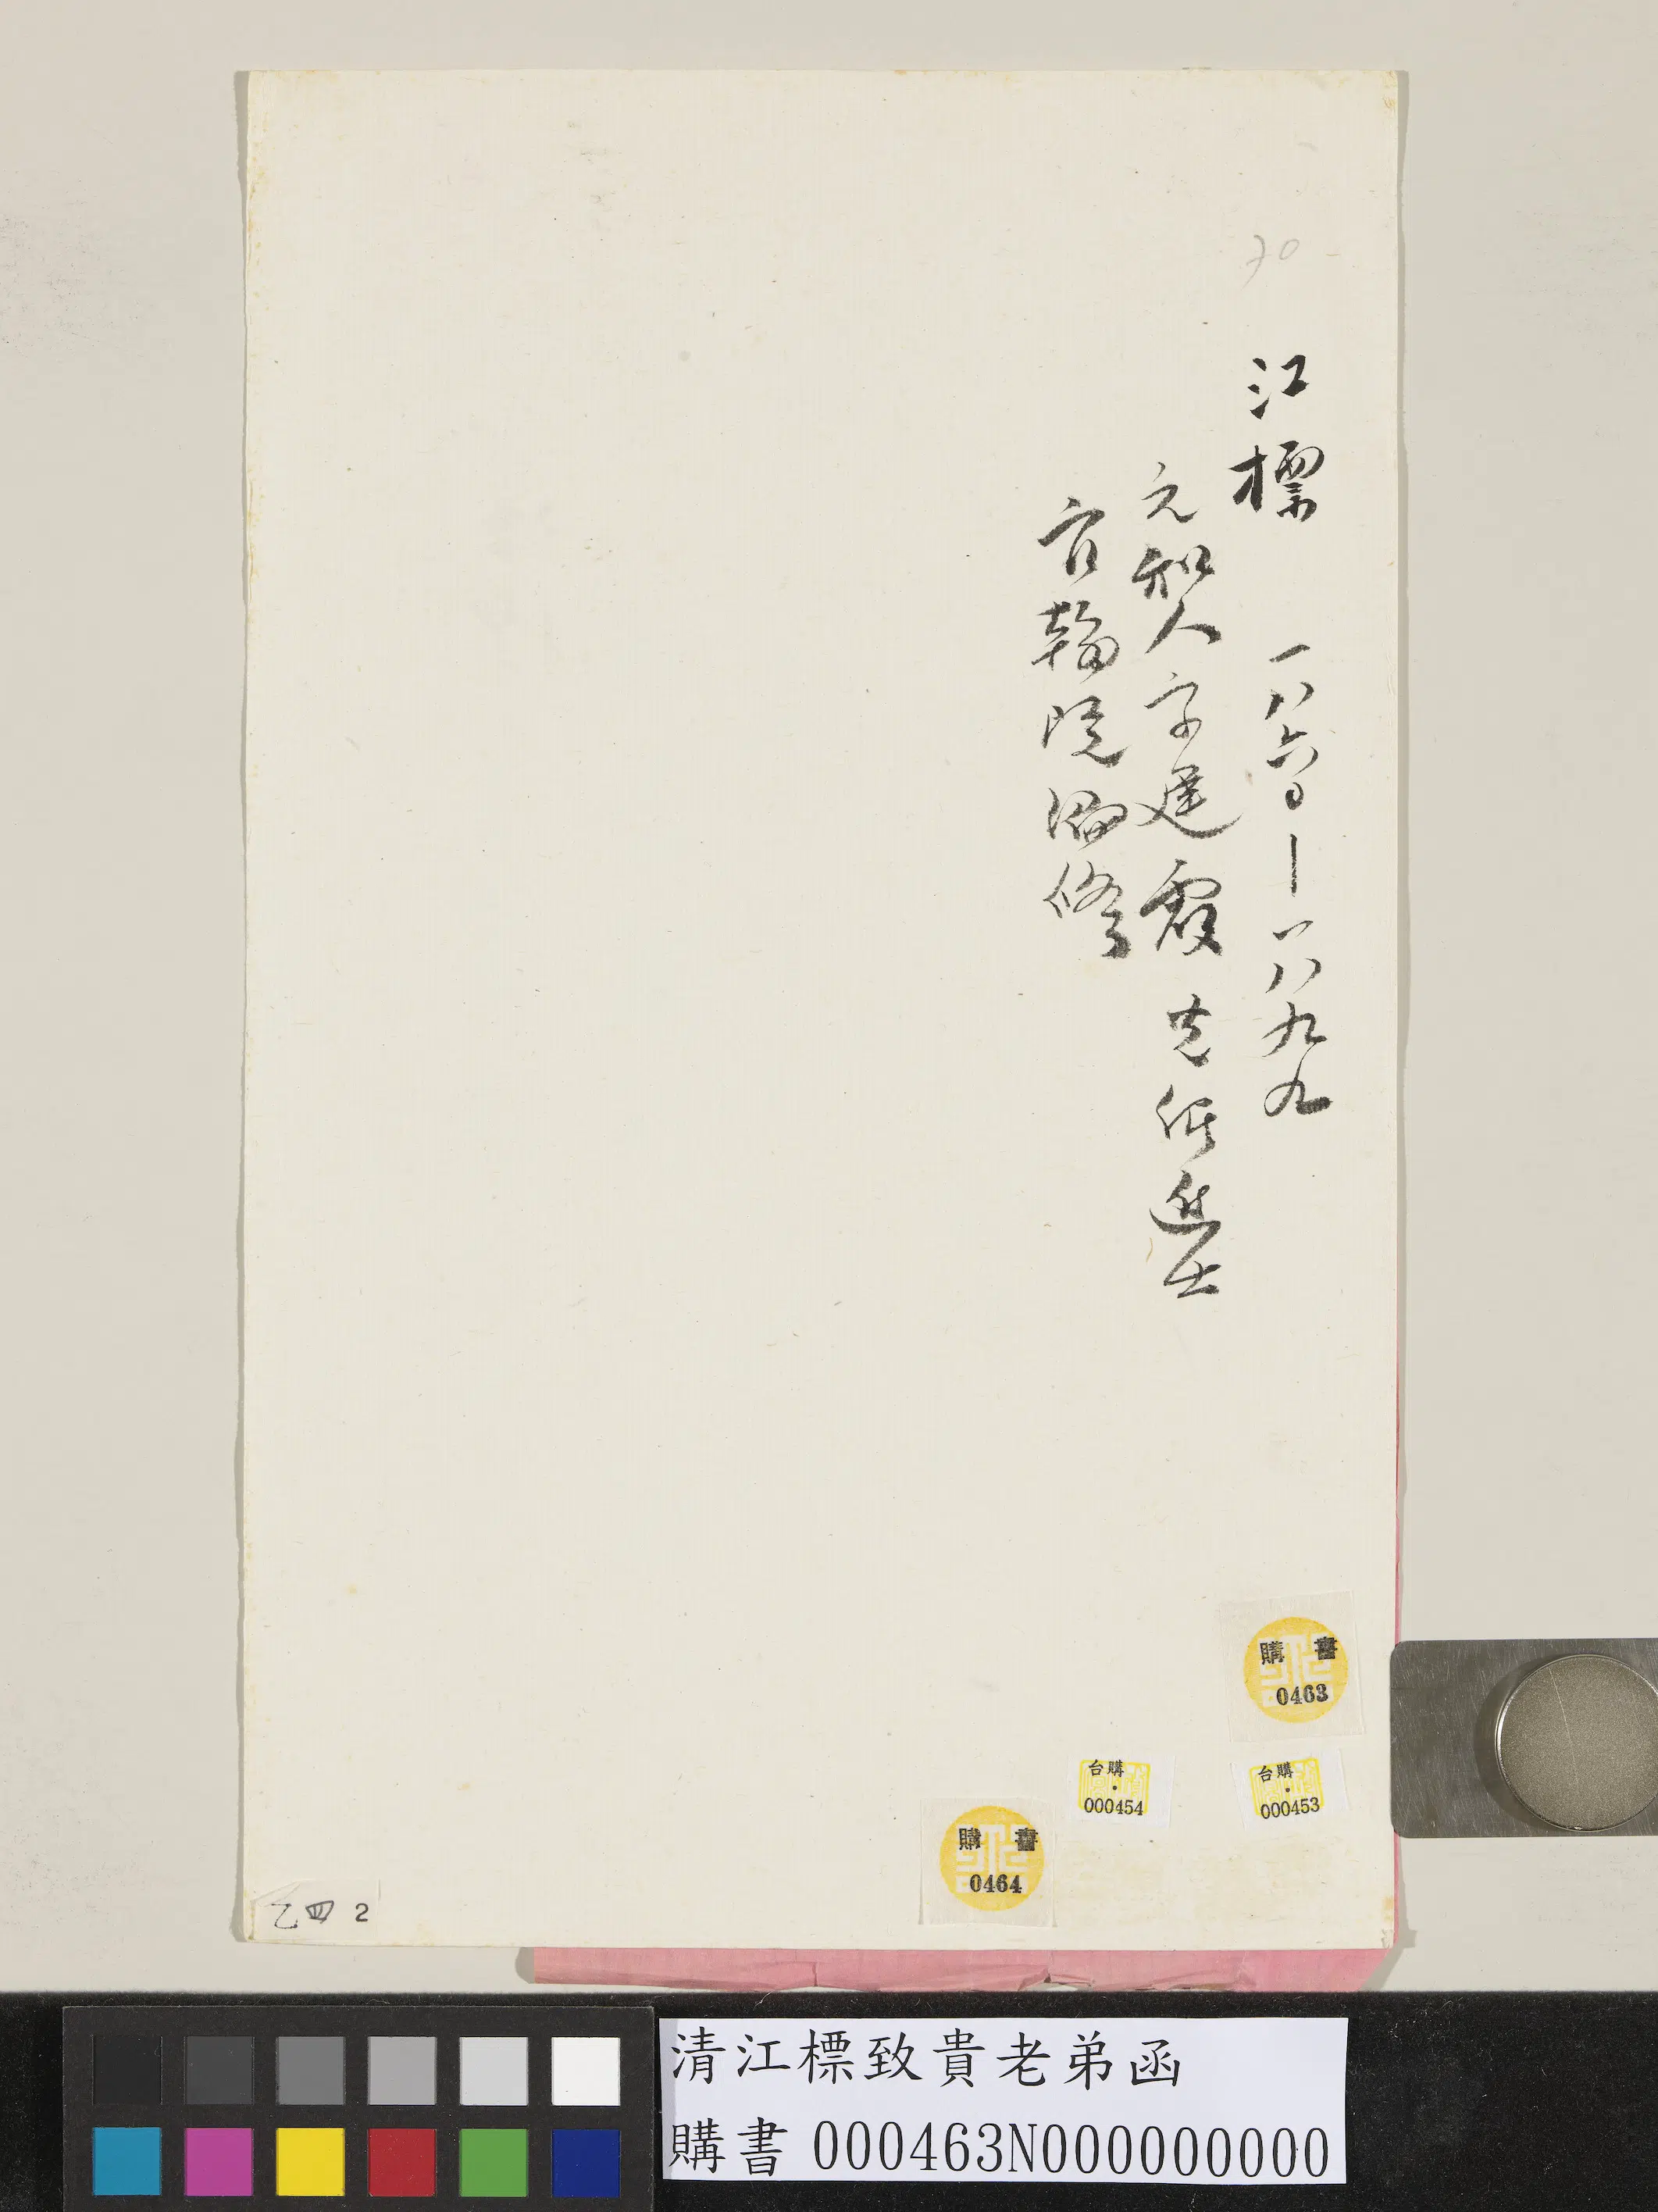 70
江標 一八六〇—一八九九
元和人字建霞 光緒進士
官翰院編修
購書
0463
台購·
000454
台購·
000453
購書
0464
乙四 2
清江標致貴老弟函
購書 000463N000000000